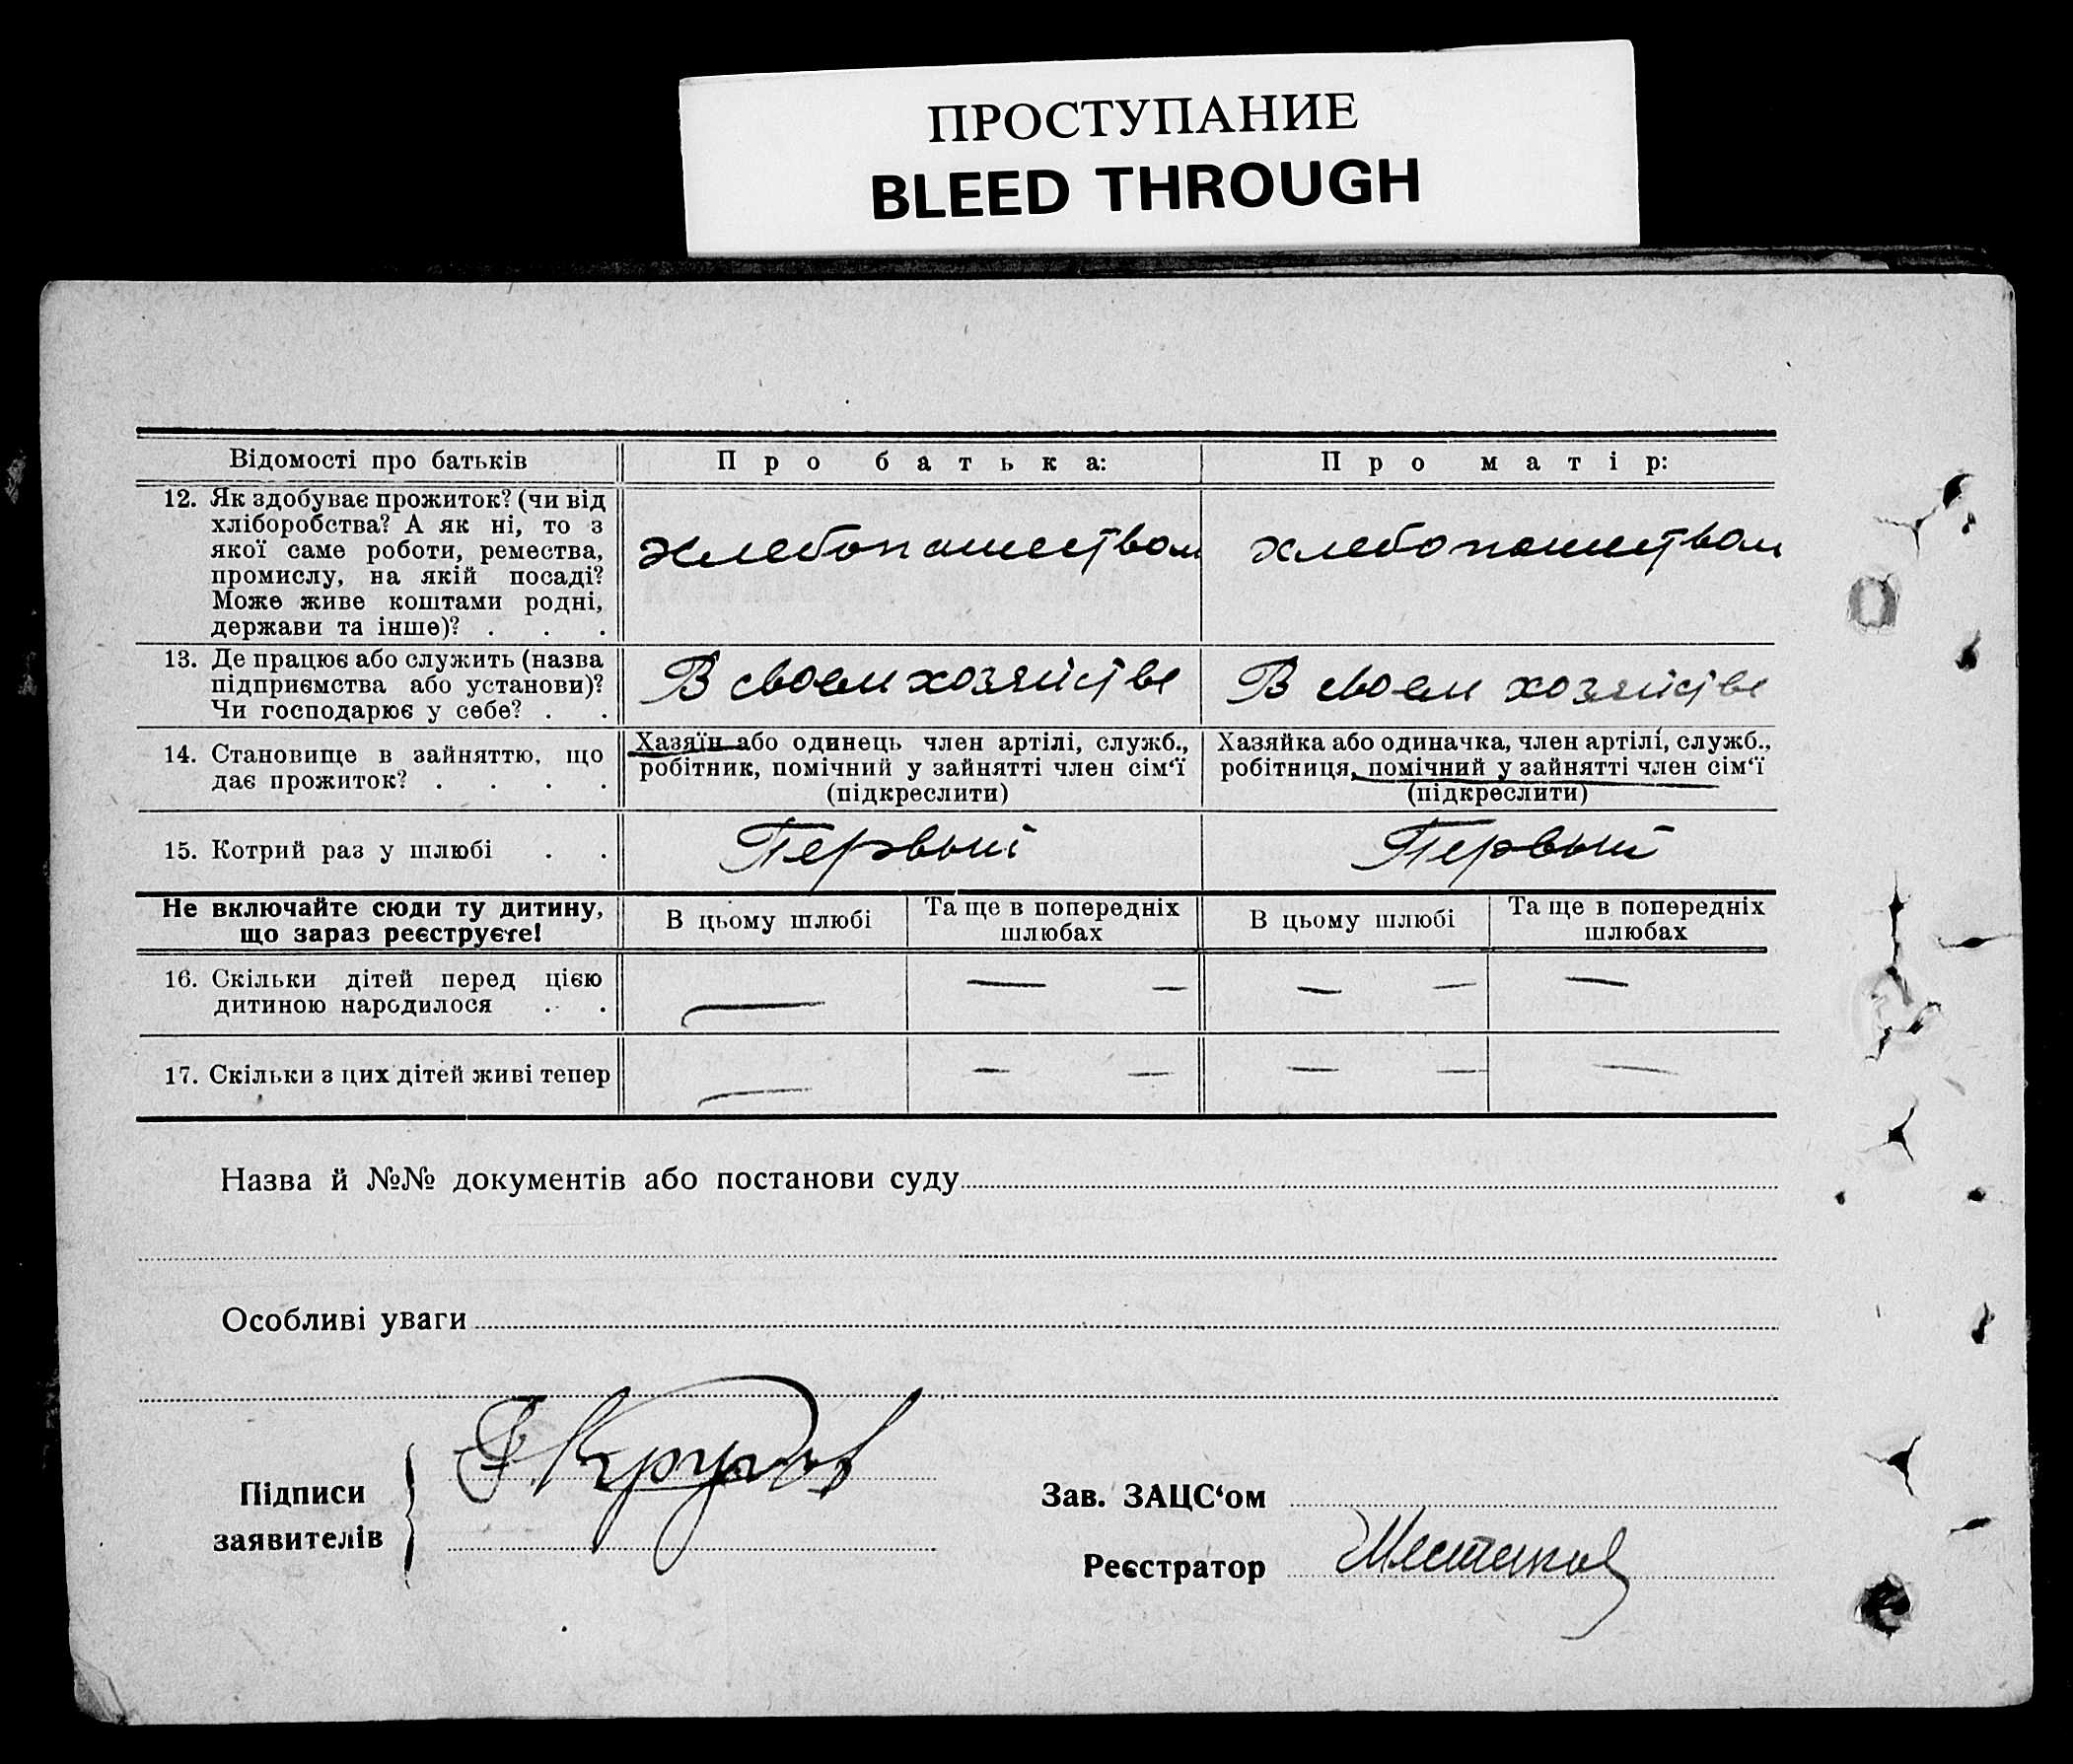 ПРОСТУПАНИЕ
BLEED THROUGH
Відомості про батьків
Про батька:
Про матір:
12. Як здобуває прожиток? (чи від
хліборобства? А як ні, то з
якої саме роботи, ремества,
промислу, на якій посаді?
Може живе коштами родні,
держави та інше)? . . .
хлебопашеством
хлебопашеством
13. Де працює або служить (назва
підприємства або установи)?
Чи господарює у себе? . .
В своем хозяйстве
В своем хозяйстве
14. Становище в зайняттю, що
дає прожиток? . . . .
Хазяїн або одинець член артілі, служб.,
робітник, помічний у зайнятті член сім‘ї
(підкреслити)
Хазяйка або одиначка, член артілі, служб.,
робітниця, помічний у зайнятті член сім‘ї
(підкреслити)
15. Котрий раз у шлюбі . .
Первый
Первый
Не включайте сюди ту дитину,
що зараз реєструєте!
В цьому шлюбі
Та ще в попередніх
шлюбах
В цьому шлюбі
Та ще в попередніх
шлюбах
16. Скільки дітей перед цією
дитиною народилося . .
— — — — — —
17. Скільки з цих дітей живі тепер
— — — — — —
Назва й №№ документів або постанови суду
Особливі уваги
Підписи
заявителів
Зав. ЗАЦС‘ом
Реєстратор